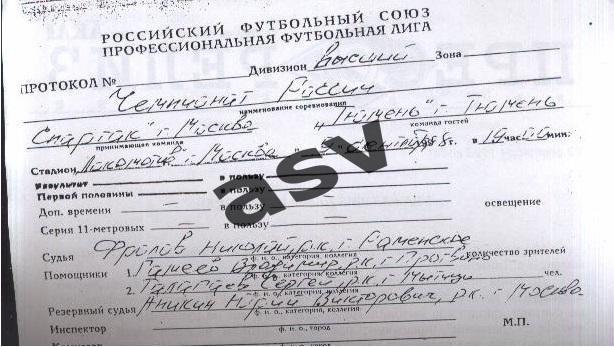 РОССИЙСКИЙ ФУТБОЛЬНЫЙ СОЮЗ
ПРОФЕССИОНАЛЬНАЯ ФУТБОЛЬНАЯ ЛИГА
ПРОТОКОЛ № Дивизион Высший Зона
Чемпионат России
наименование соревнования
"Спартак" г. Москва "Тюмень" г. Тюмень
принимающая команда команда гостей
Стадион "Локомотив" г. Москва " 9 " сентября 98 г. в 19 час. 00 мин.
Результат в пользу
Первой половины в пользу
Доп. времени — в пользу — освещение
Серия 11-метровых — в пользу —
Судья Фролов Николай, р.к., г. Раменское
ф. и. о., категория, коллегия количество зрителей
Помощники 1. Владимир р.к., г.
ф. и. о., категория, коллегия
2. Сергей р.к., г. Мытищи чел.
ф. и. о., категория, коллегия
Резервный судья Аникин Юрий Викторович, р.к., г. Москва
Инспектор ф. и. о., город М.П.
asv